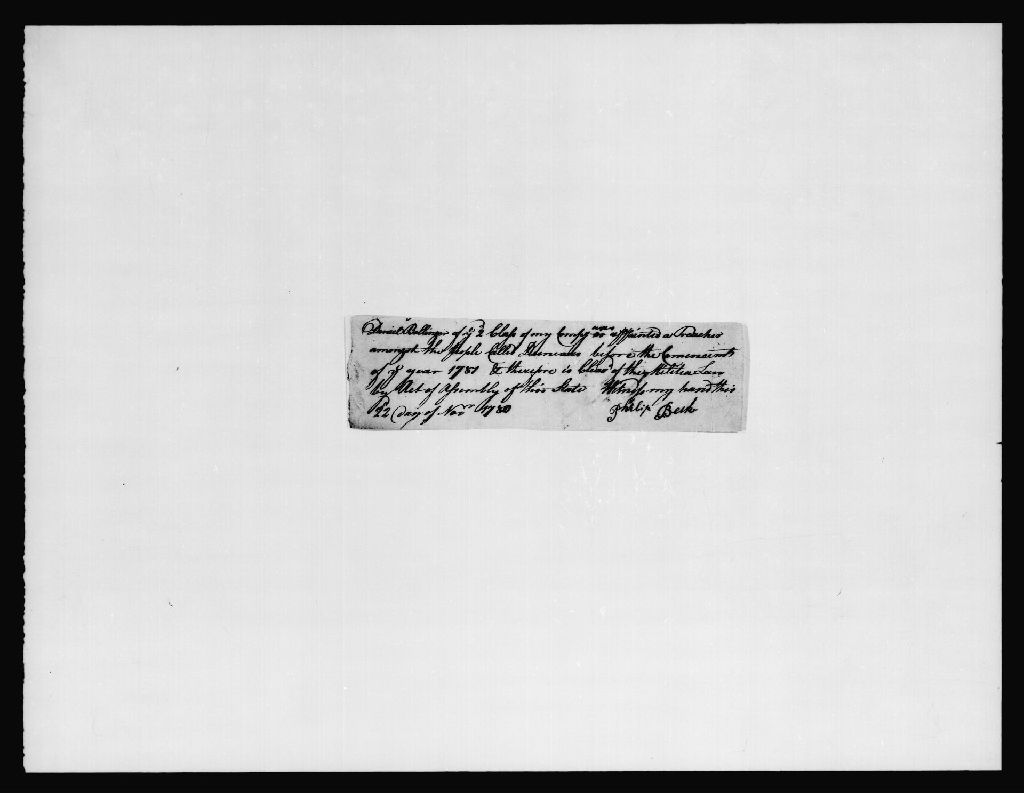 Daniel Bollinger of ye 2 Class of my Compy was appointed a Teacher
amongst the people Called before the Comencement
of ye year 1781 & therefore is Clear of the Militia Law
by Act of Assembly of this State Witness my hand this
22 Day of Novr 1780 Philip Beck